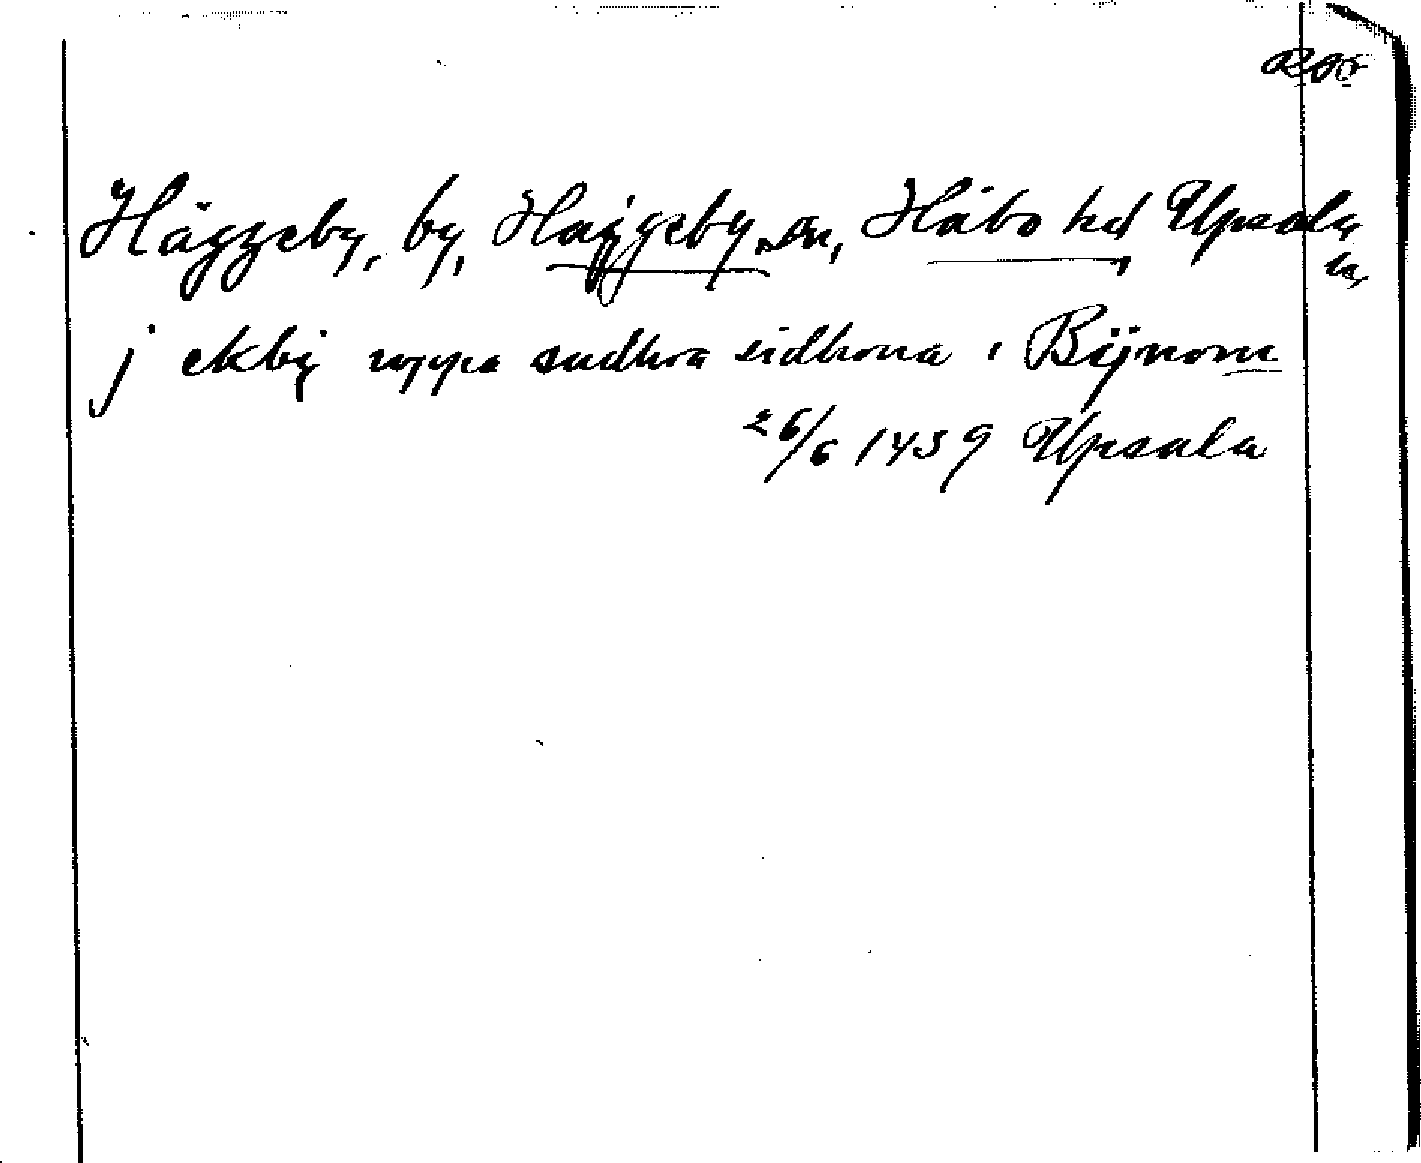 RPB
Häggeby, by, Häggeby sn, Håbo hd Upsala
l.
j ekbÿ wppa sudhra sidhona i Bÿnom
26/6 1459 Upsala